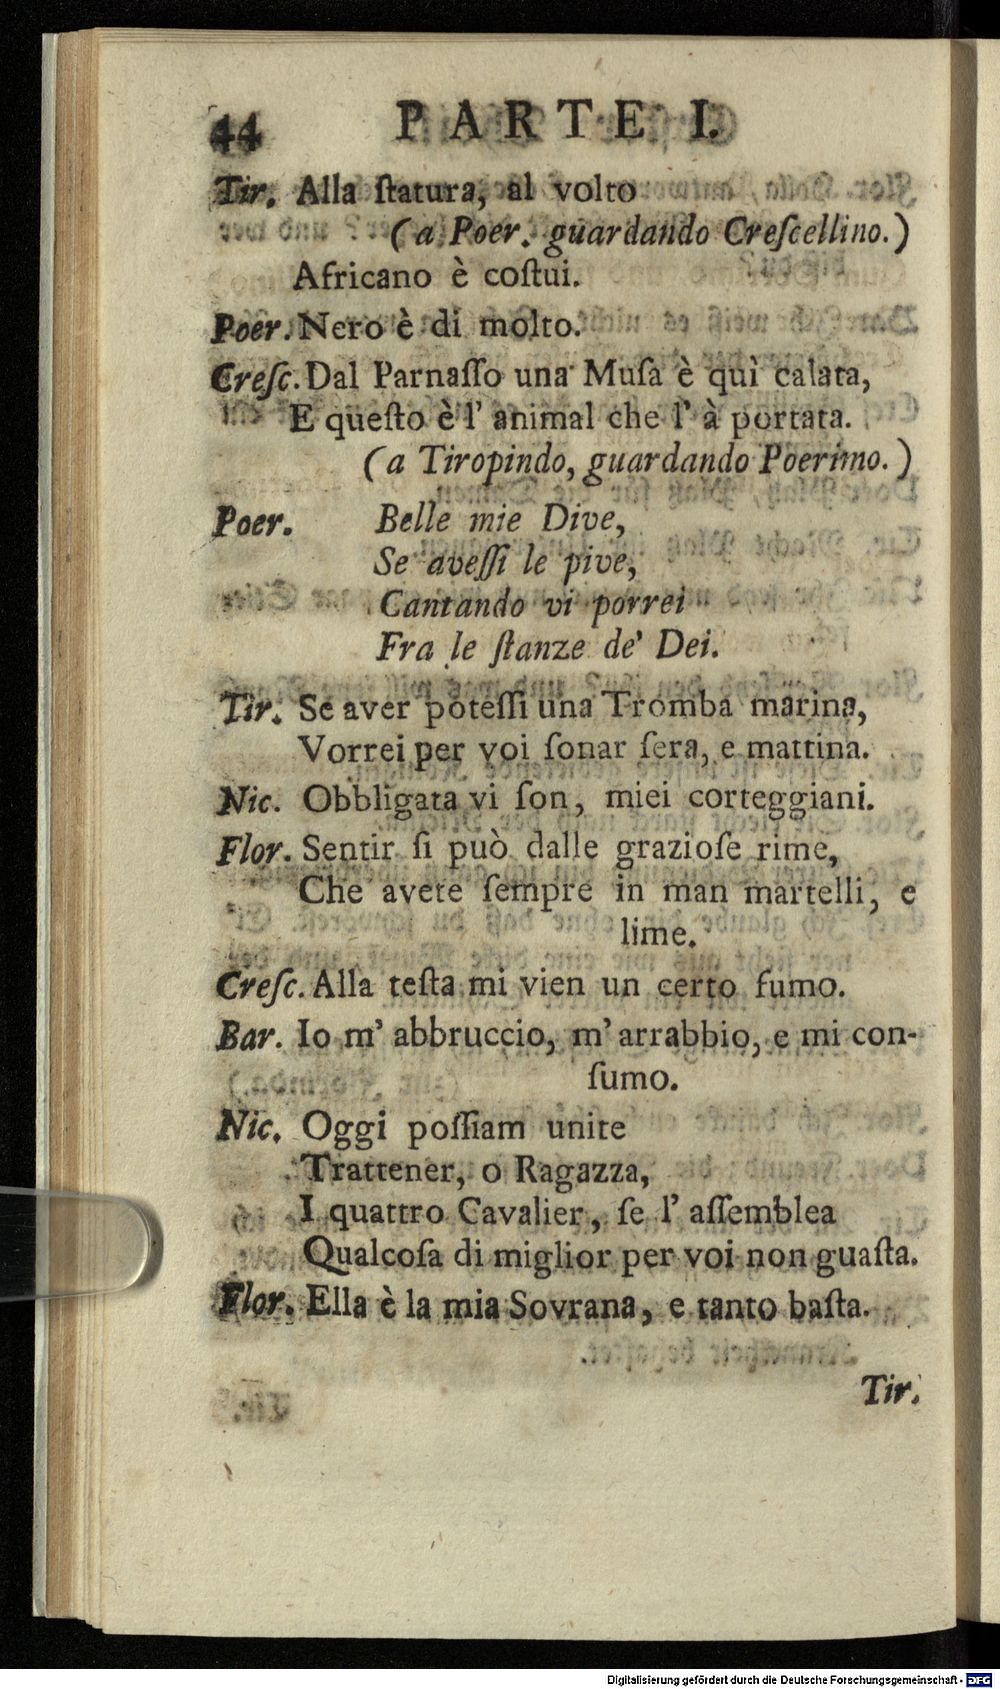 44 PARTE I.
Tir. Alla ſtatura, al volto
(a Poer. guardando Creſcellino.)
Africano è coſtui.
Poer. Nero è di molto.
Creſc. Dal Parnaſſo una Muſa è quì calata,
E queſto è l' animal che l' à portata.
(a Tiropindo, guardando Poerimo.)
Poer. Belle mie Dive,
Se aveſſi le pive,
Cantando vi porrei
Fra le ſtanze de' Dei.
Tir. Se aver poteſſi una Tromba marina,
Vorrei per voi ſonar ſera, e mattina.
Nic. Obbligata vi ſon, miei corteggiani.
Flor. Sentir ſi può dalle grazioſe rime,
Che avete ſempre in man martelli, e
lime.
Creſc. Alla teſta mi vien un certo fumo.
Bar. Io m' abbruccio, m' arrabbio, e mi con-
ſumo.
Nic. Oggi poſſiam unite
Trattener, o Ragazza,
I quattro Cavalier, ſe l' aſſemblea
Qualcoſa di miglior per voi non guaſta.
Flor. Ella è la mia Sovrana, e tanto baſta.
Tir.
Digitalisierung gefördert durch die Deutsche Forschungsgemeinschaft - DFG